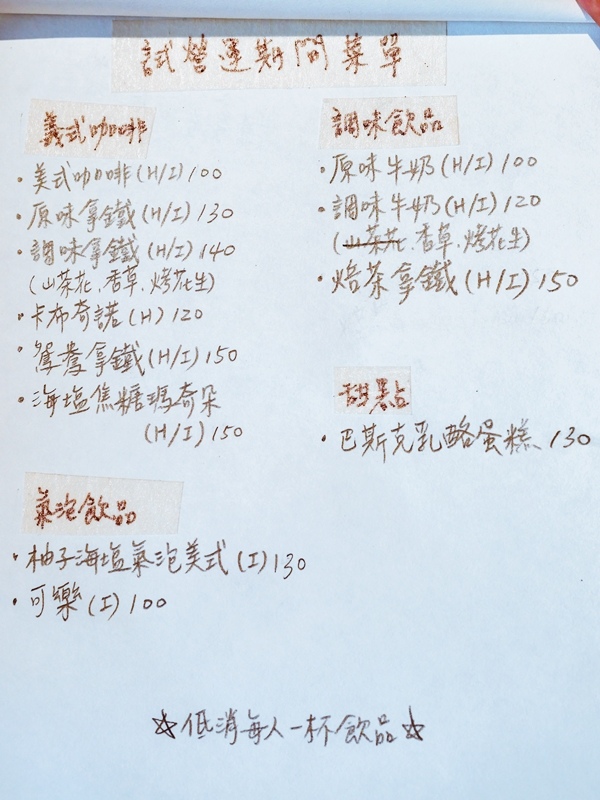 試營運期間菜單
義式咖啡
・美式咖啡(H/I)100
・原味拿鐵(H/I)130
・調味拿鐵(H/I)140
(山茶花.香草.烤花生)
・卡布奇諾(H)120
・鴛鴦拿鐵(H/I)150
・海塩焦糖瑪奇朵
(H/I)150
氣泡飲品
・柚子海塩氣泡美式(I)130
・可樂(I)100
調味飲品
・原味牛奶(H/I)100
・調味牛奶(H/I)120
(山茶花.香草.烤花生)
・焙茶拿鐵(H/I)150
甜點
・巴斯克乳酪蛋糕 130
☆低消每人一杯飲品☆